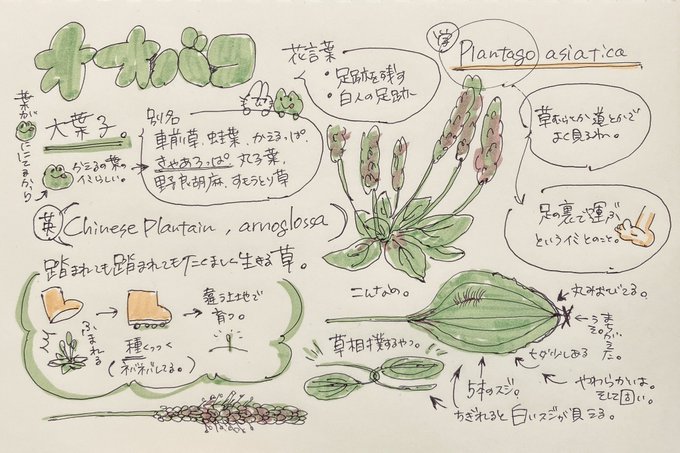 オオバコ
花言葉
・足跡を残す
・白人の足跡
学
Plantago asiatica
大葉子。
葉が
にてるから
かえるの葉の
イミらしい。
別名
車前草、蛙葉、かえるっぱ
きゃあろっぱ 丸子葉、
野良胡麻、すもうとり草
草むらとか道とかで
よく見るね。
足の裏で運ぶ
というイミとのこと。
英
Chinese Plantain, arnoglossa
踏まれても踏まれてもたくましく生きる草。
ふまれる
種くっつく
(ネバネバしてる。)
違う土地で
育つ。
こんなの。
丸みおびてる。
まちがえた。
うそ。
草相撲するやつ。
5本のスジ。
七ダ少しある
やわらかいよ。
そして固い。
ちぎれると白いスジが見える。